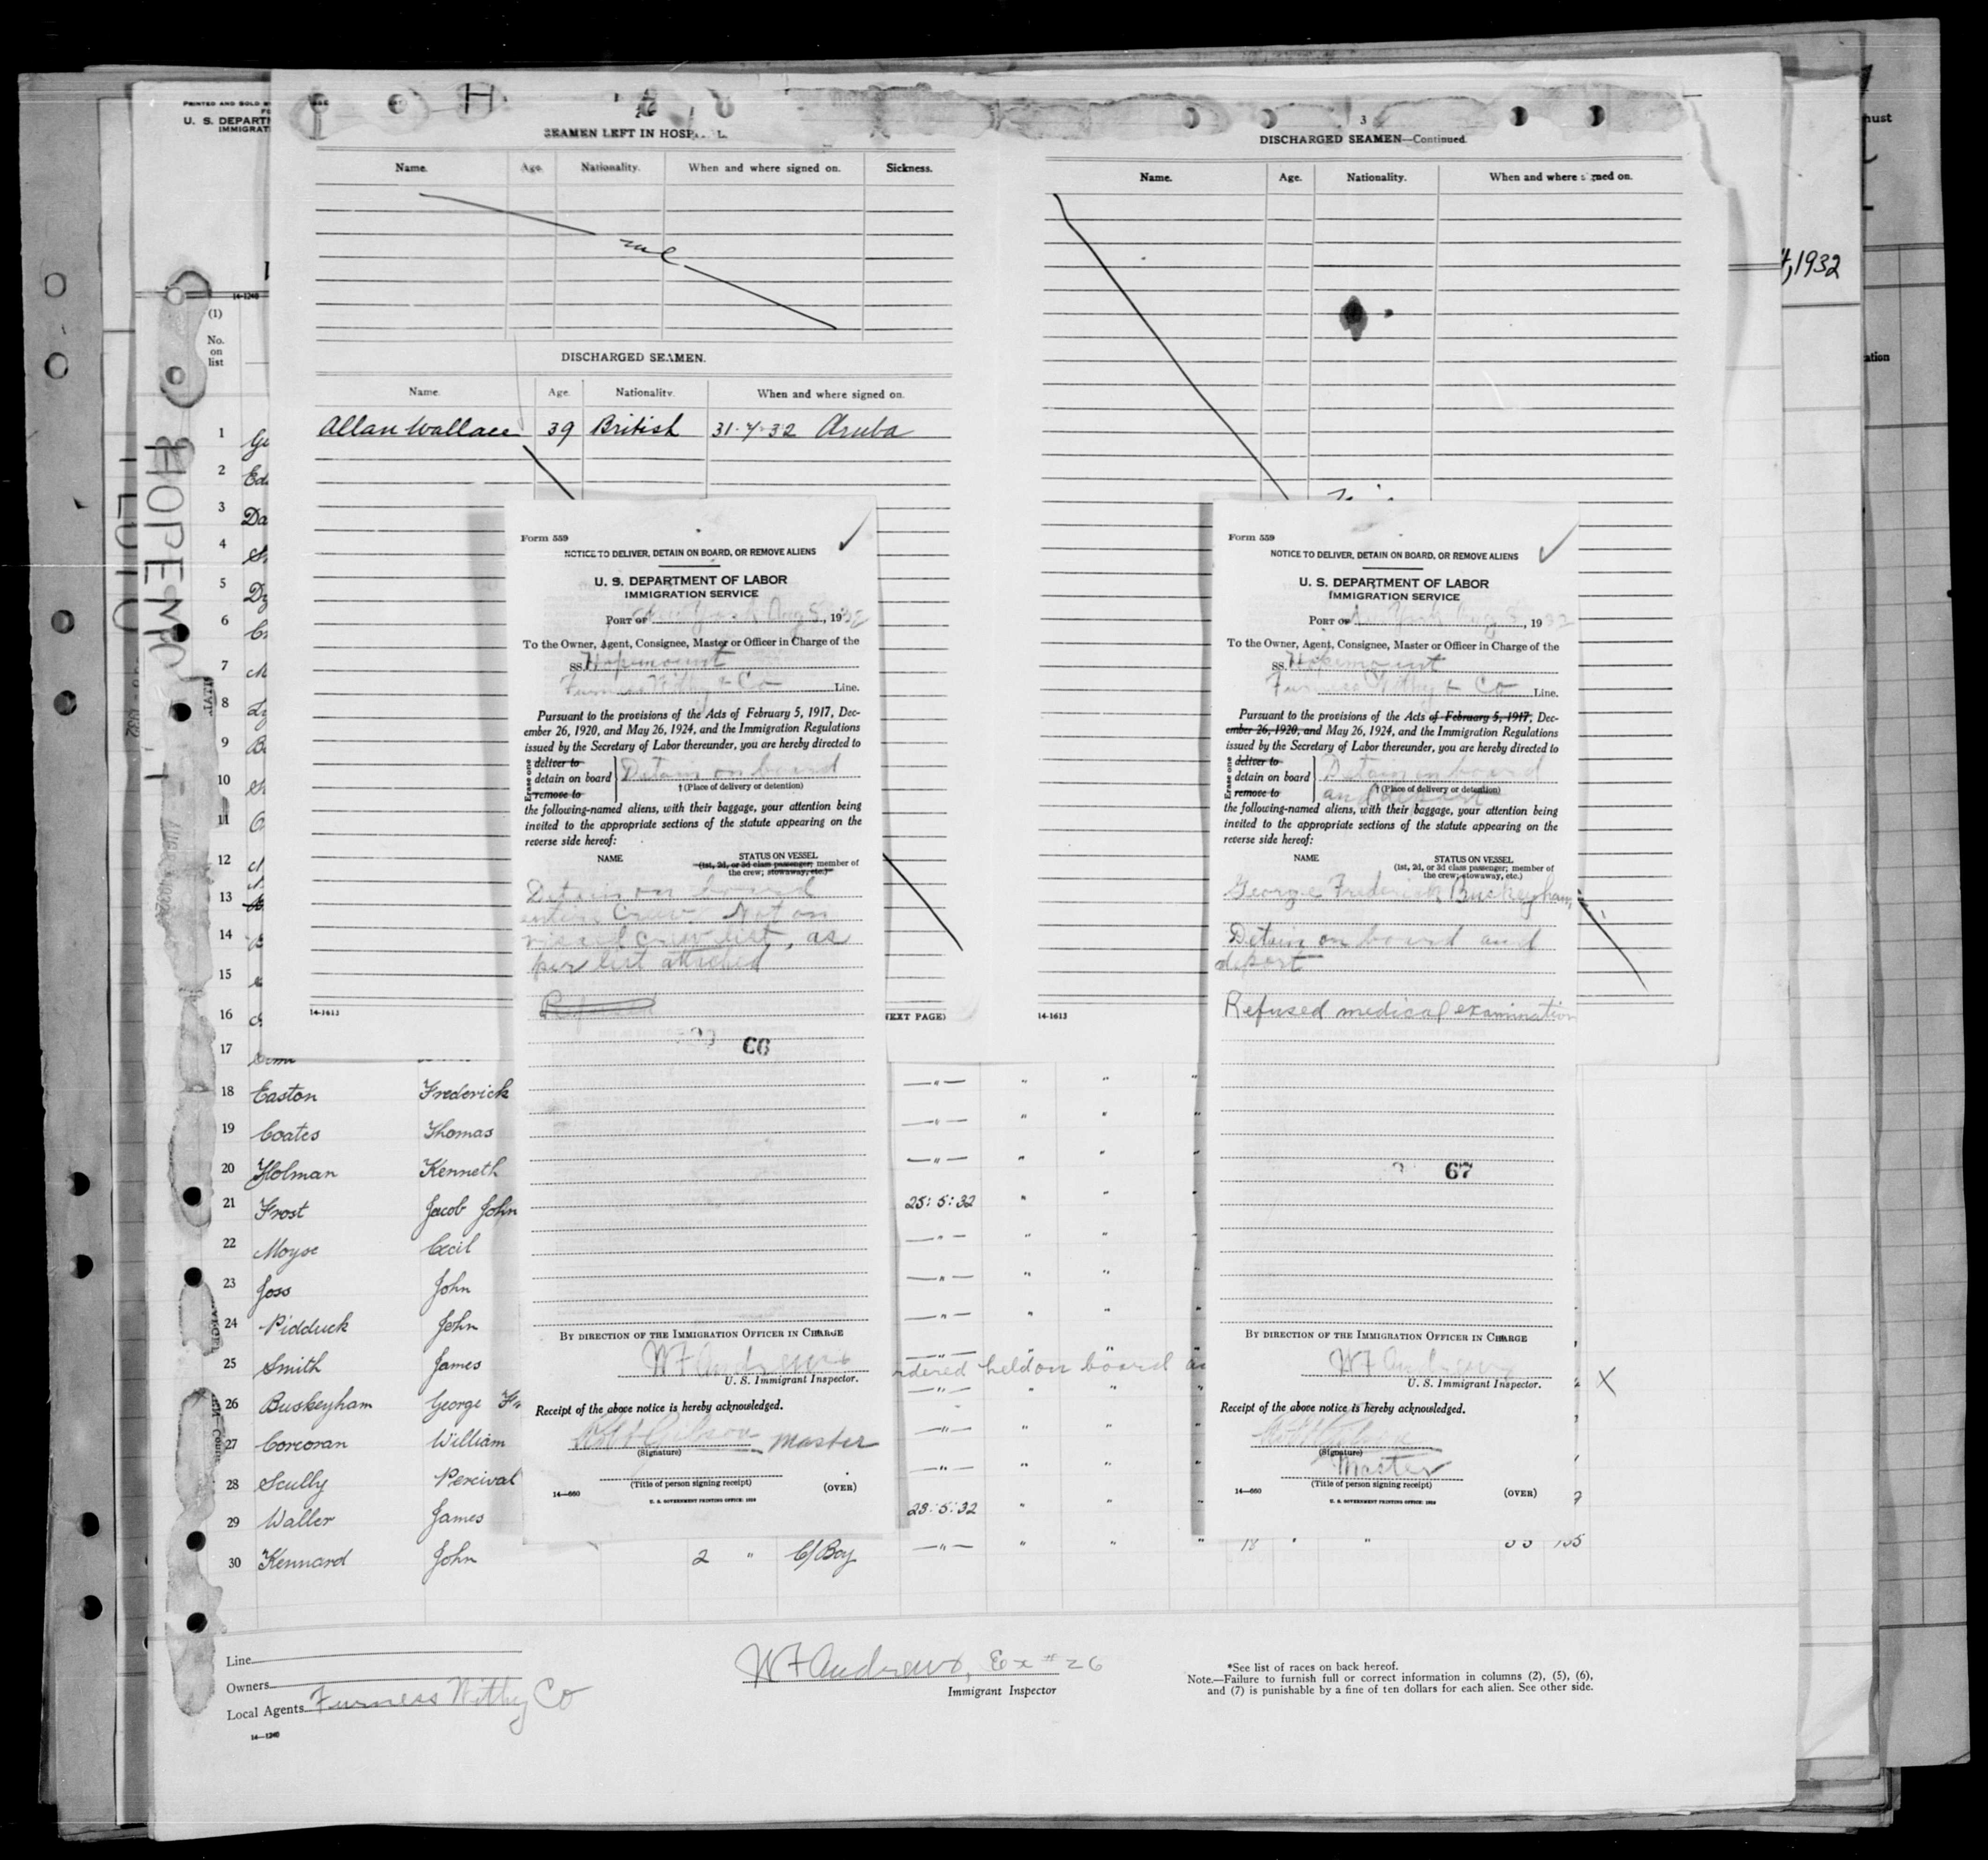 PRINTED AND SOLD B
U. S. DEPARTM
IMMIGRAT
H
SEAMEN LEFT IN HOSP L.
Name. Age. Nationality. When and where signed on. Sickness.
DISCHARGED SEAMEN.
Name. Age. Nationality. When and where signed on.
Allan Wallace 39 British 31·7·32 Aruba
14-1613
(NEXT PAGE)
3
DISCHARGED SEAMEN—Continued.
Name. Age. Nationality. When and where signed on.
14-1613
4,1932
nust
ation
HOPEMO
14-1240
(1)
No.
on
list
Form 559
NOTICE TO DELIVER, DETAIN ON BOARD, OR REMOVE ALIENS
U. S. DEPARTMENT OF LABOR
IMMIGRATION SERVICE
PORT OF New York Aug 5, 1932
To the Owner, Agent, Consignee, Master or Officer in Charge of the
SS. Hopemount
Furness Withy & Co Line.
Pursuant to the provisions of the Acts of February 5, 1917, Dec-
ember 26, 1920, and May 26, 1924, and the Immigration Regulations
issued by the Secretary of Labor thereunder, you are hereby directed to
Erase one
deliver to
detain on board Detain on board
remove to
†(Place of delivery or detention)
the following-named aliens, with their baggage, your attention being
invited to the appropriate sections of the statute appearing on the
reverse side hereof:
NAME STATUS ON VESSEL
(1st, 2d, or 3d class passenger; member of
the crew; stowaway, etc.)
Detain on board
entire crew. Not on
visaed crew list, as
per list attached
Refused
66
BY DIRECTION OF THE IMMIGRATION OFFICER IN CHARGE
W F Andrews
U. S. Immigrant Inspector.
Receipt of the above notice is hereby acknowledged.
Gibson Master
(Signature)
(Title of person signing receipt)
14—660 (OVER)
U. S. GOVERNMENT PRINTING OFFICE: 1928
Form 559
NOTICE TO DELIVER, DETAIN ON BOARD, OR REMOVE ALIENS
U. S. DEPARTMENT OF LABOR
IMMIGRATION SERVICE
PORT OF New York Aug 5, 1932
To the Owner, Agent, Consignee, Master or Officer in Charge of the
SS. Hopemount
Furness Withy & Co Line.
Pursuant to the provisions of the Acts of February 5, 1917, Dec-
ember 26, 1920, and May 26, 1924, and the Immigration Regulations
issued by the Secretary of Labor thereunder, you are hereby directed to
Erase one
deliver to
detain on board Detain on board
remove to and deport
†(Place of delivery or detention)
the following-named aliens, with their baggage, your attention being
invited to the appropriate sections of the statute appearing on the
reverse side hereof:
NAME STATUS ON VESSEL
(1st, 2d, or 3d class passenger; member of
the crew; stowaway, etc.)
George Frederick Buckeyham,
Detain on board and
deport
Refused medical examination
67
BY DIRECTION OF THE IMMIGRATION OFFICER IN CHARGE
W F Andrews
U. S. Immigrant Inspector.
Receipt of the above notice is hereby acknowledged.
(Signature)
Master
(Title of person signing receipt)
14—660 (OVER)
U. S. GOVERNMENT PRINTING OFFICE: 1928
1
2 Ed
3 Da
4
5
6
7
8
9
10
11
12
13
14
15
16
17
18 Easton Frederick —"— " " "
19 Coates Thomas —"— " "
20 Holman Kenneth —"— " " "
21 Frost Jacob John 25:5:32 " " "
22 Moyse Cecil —"— " " "
23 Joss John —"— " " "
24 Pidduck John —"— " " "
25 Smith James —"— " "
rdered held on board
26 Buskeyham George Fr —"— " " " X
27 Corcoran William —"— " " "
28 Scully Percival —"— " " "
29 Waller James 28:5:32 " " "
30 Kennard John 2 " C/Boy —"— " " " 18 " "
Line
Owners
Local Agents Furness Withy Co
14—1240
W F Andrews, Ex #26
Immigrant Inspector
*See list of races on back hereof.
Note.—Failure to furnish full or correct information in columns (2), (5), (6),
and (7) is punishable by a fine of ten dollars for each alien. See other side.